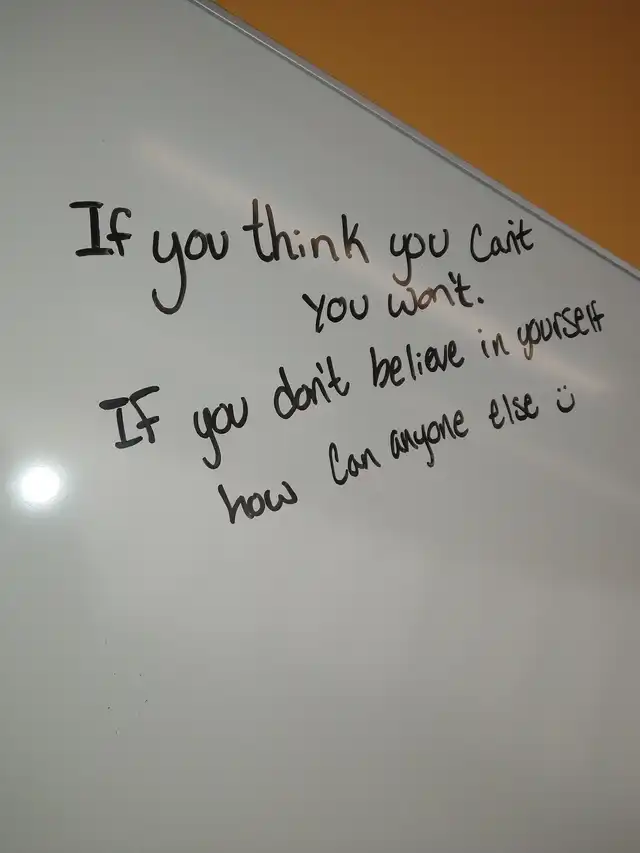 If you think you can't
you won't.
If you don't believe in yourself
how can anyone else ☺